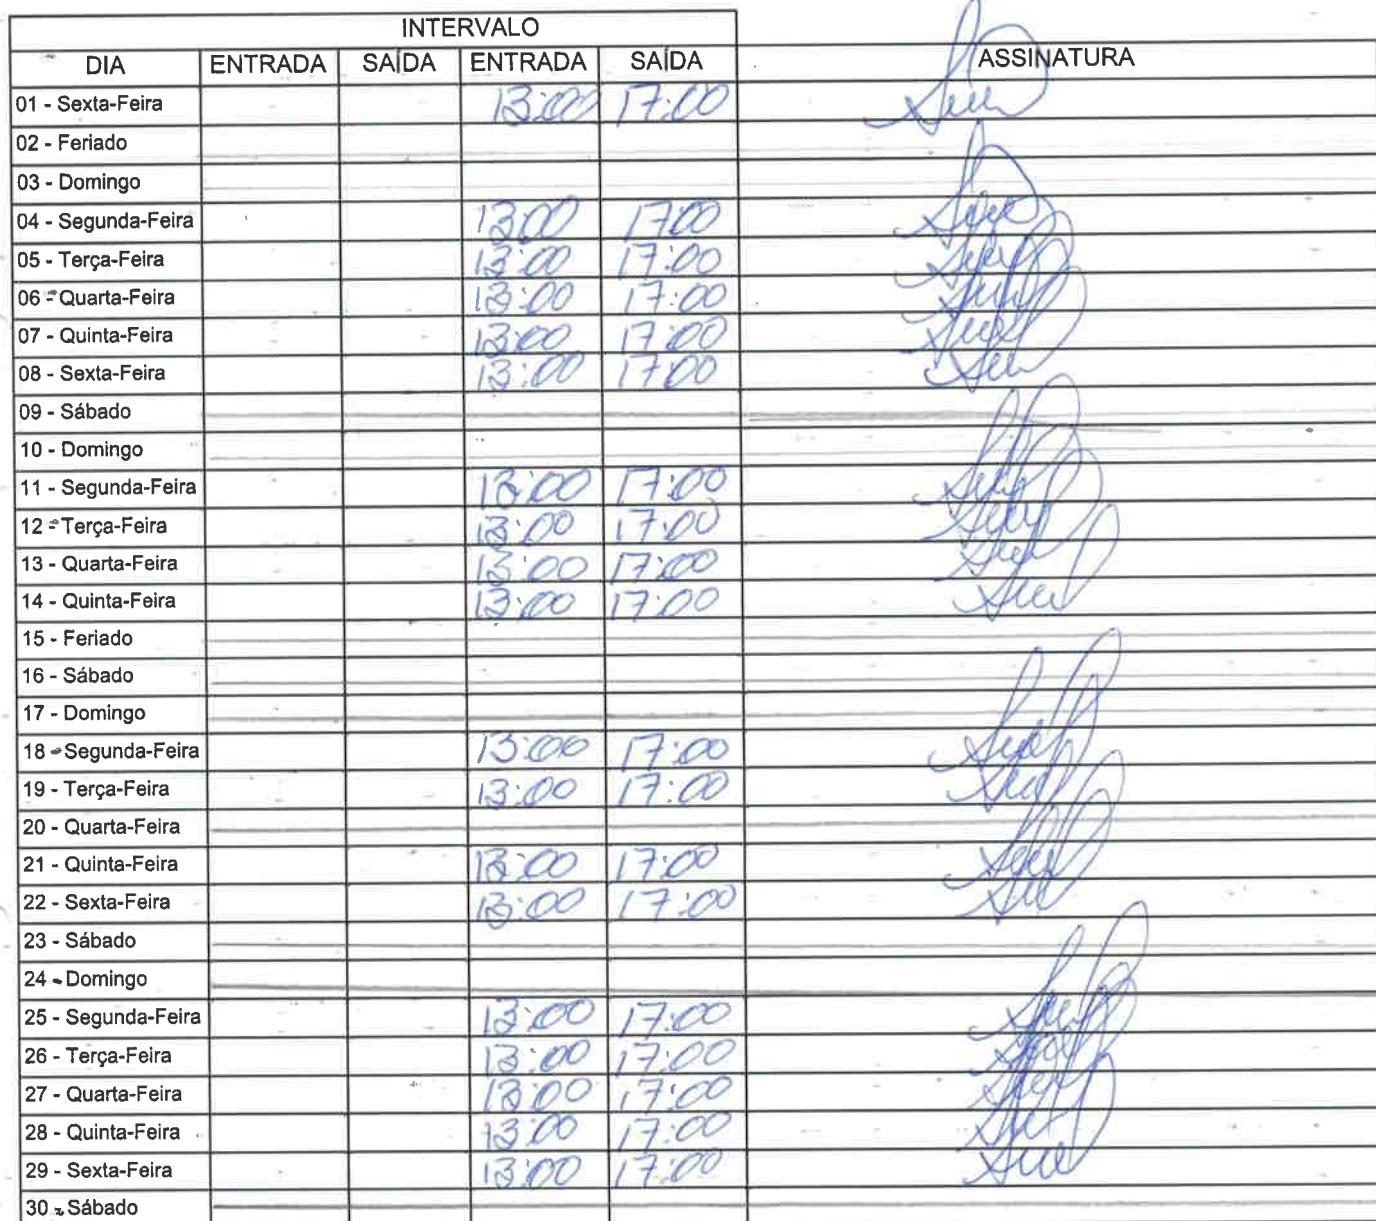 INTERVALO
DIA ENTRADA SAÍDA ENTRADA SAÍDA ASSINATURA
01 - Sexta-Feira 13:00 17:00
02 - Feriado
03 - Domingo
04 - Segunda-Feira 13:00 17:00
05 - Terça-Feira 13:00 17:00
06 - Quarta-Feira 13:00 17:00
07 - Quinta-Feira 13:00 17:00
08 - Sexta-Feira 13:00 17:00
09 - Sábado
10 - Domingo
11 - Segunda-Feira 13:00 17:00
12 - Terça-Feira 13:00 17:00
13 - Quarta-Feira 13:00 17:00
14 - Quinta-Feira 13:00 17:00
15 - Feriado
16 - Sábado
17 - Domingo
18 - Segunda-Feira 13:00 17:00
19 - Terça-Feira 13:00 17:00
20 - Quarta-Feira
21 - Quinta-Feira 13:00 17:00
22 - Sexta-Feira 13:00 17:00
23 - Sábado
24 - Domingo
25 - Segunda-Feira 13:00 17:00
26 - Terça-Feira 13:00 17:00
27 - Quarta-Feira 13:00 17:00
28 - Quinta-Feira 13:00 17:00
29 - Sexta-Feira 13:00 17:00
30 - Sábado